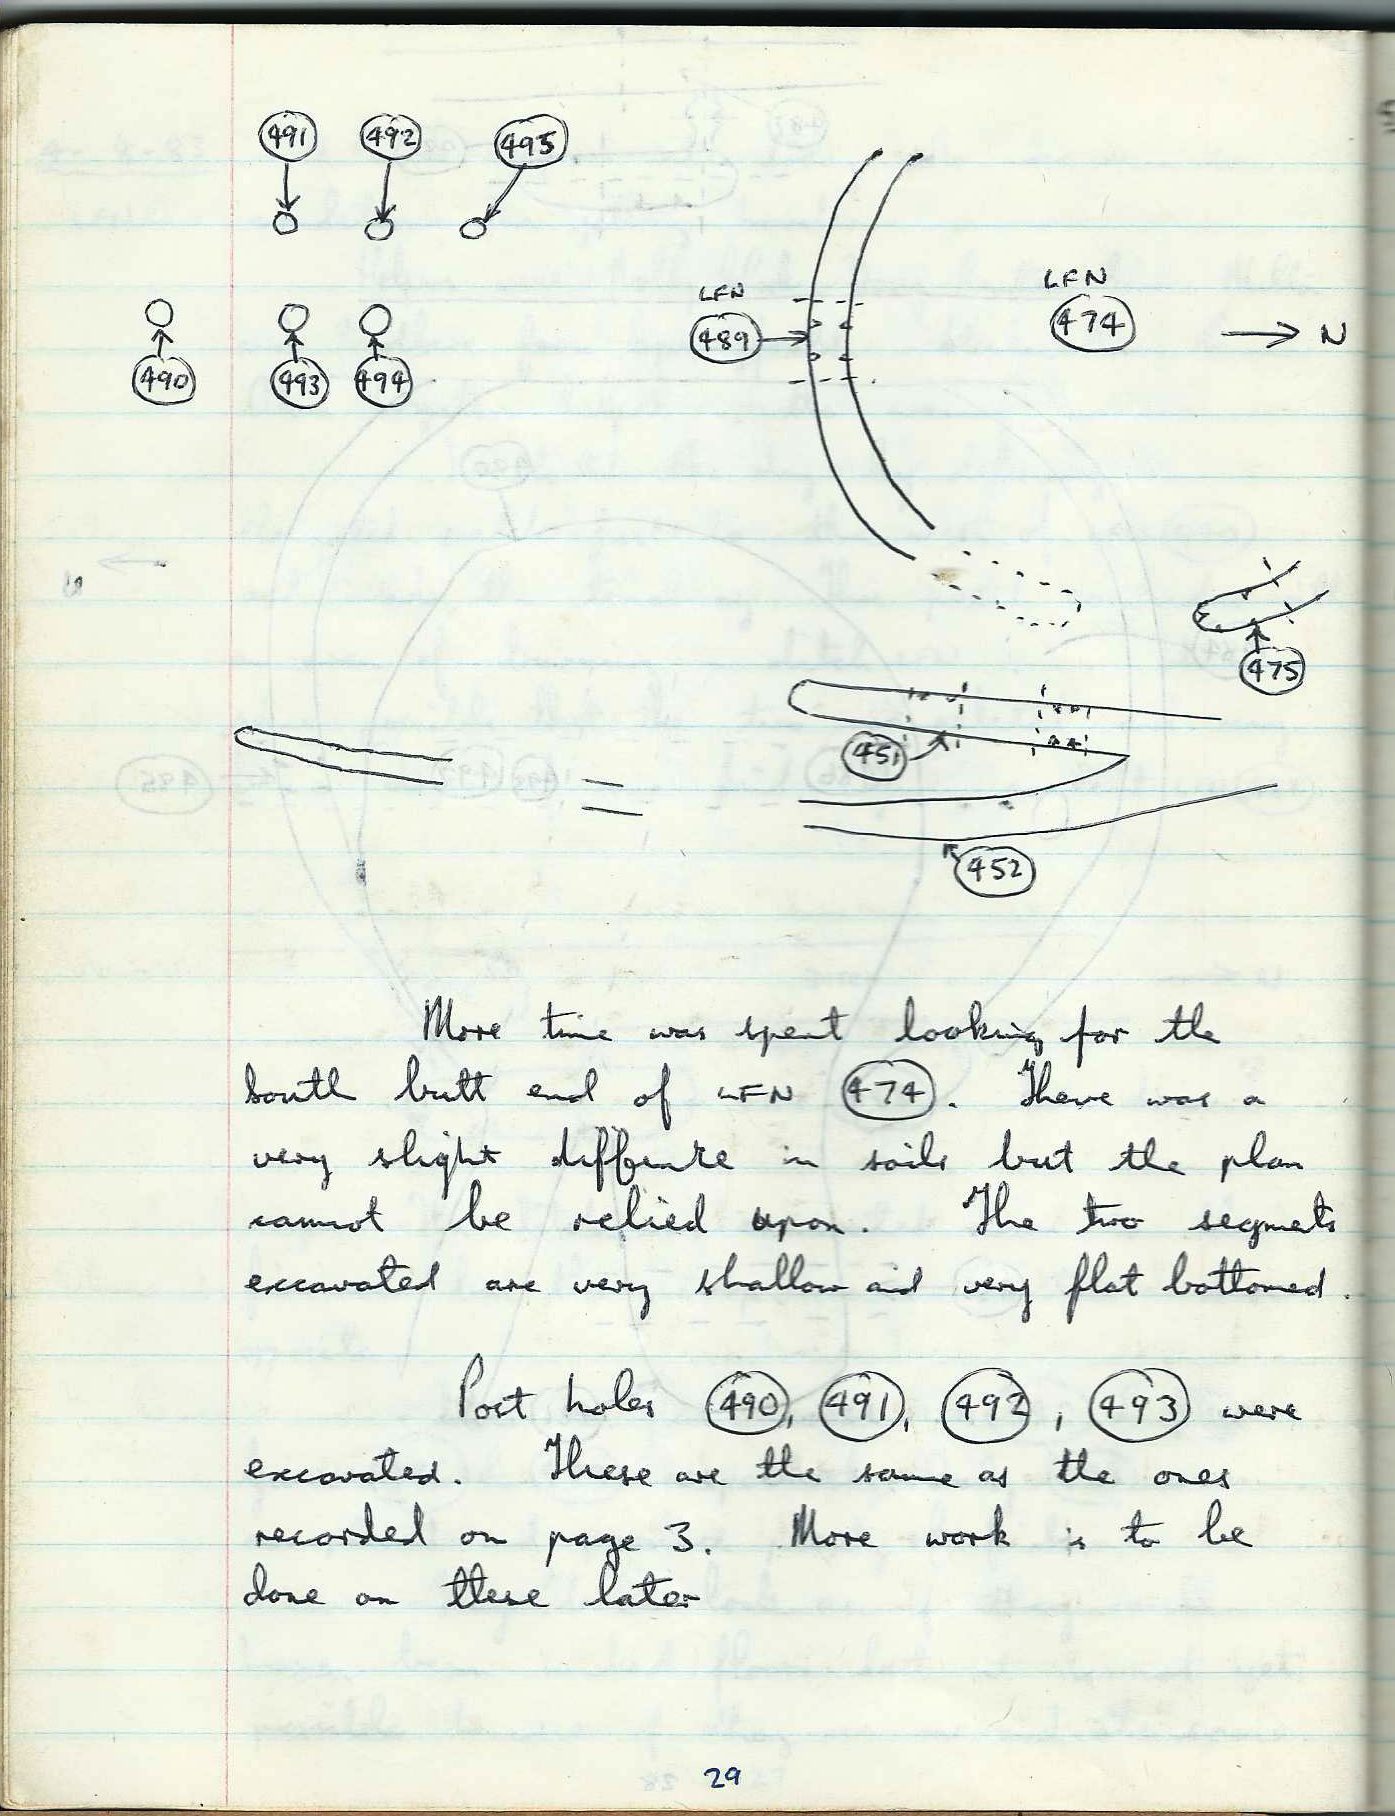 491 492 495
LFN
489
LFN
474
N
490 493 494
475
451
452
More time was spent looking for the
South butt end of LFN 474. There was a
very slight difference in soils but the plan
cannot be relied upon. The two segments
excavated are very shallow and very flat bottomed.
Post holes 490, 491, 492, 493 were
excavated. These are the same as the ones
recorded on page 3. More work is to be
done on these later
29